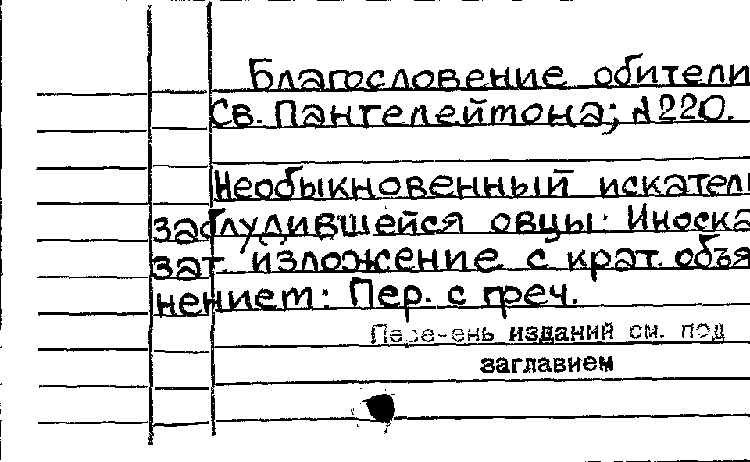 Благословение обители
Св. Пантелеймона; №220.
Необыкновенный искатель
заблудившейся овцы: Иноска-
зат. изложение с крат. объя-
нением: Пер. с греч.
Перечень изданий см. под
заглавием